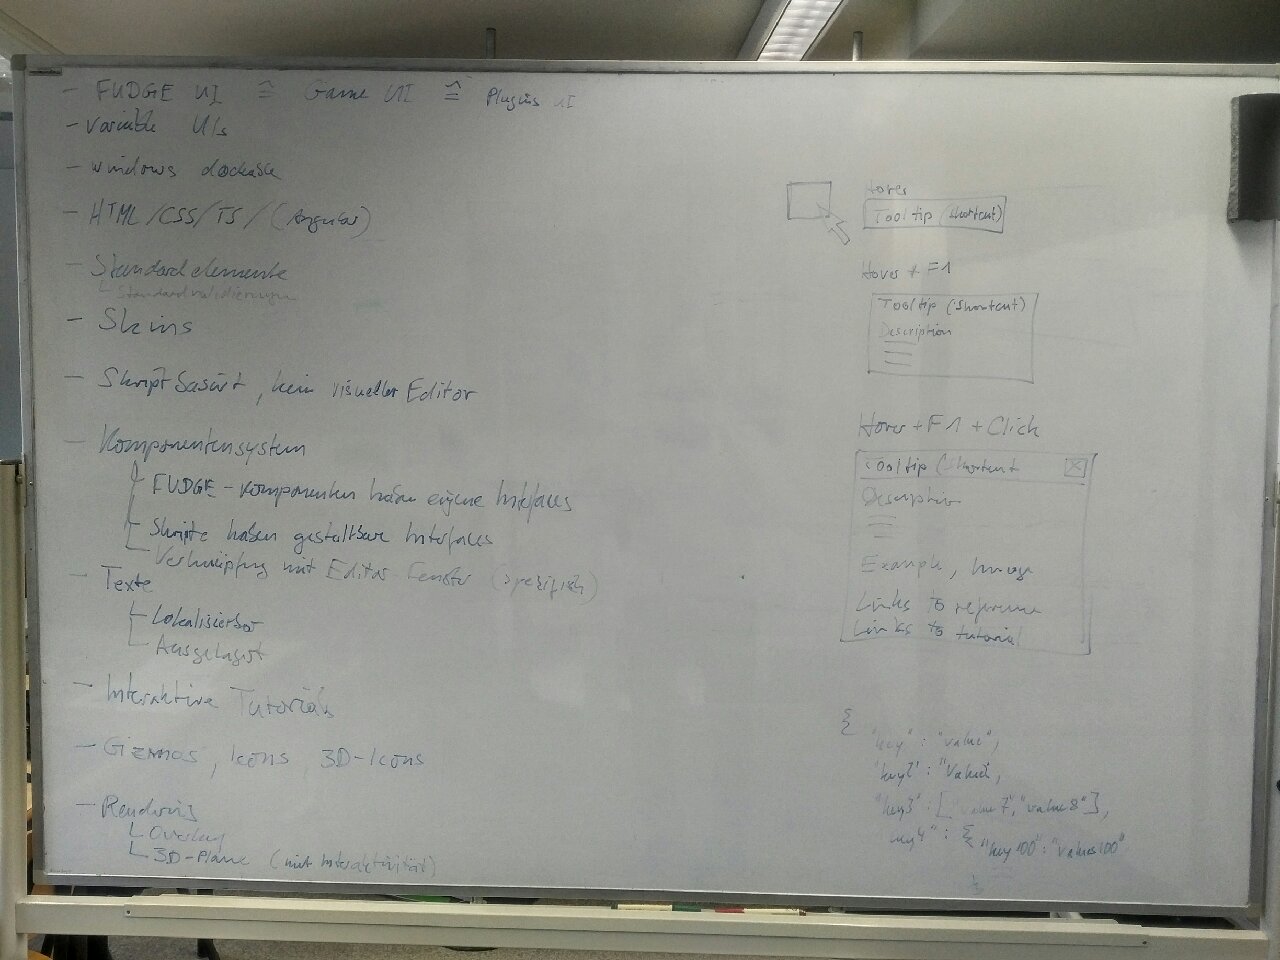 - FUDGE UI ≙ Game UI ≙ Plugins UI
- Variable UIs
- windows dockable
- HTML/CSS/TS/(Angular)
- Standardelemente
Standardvalidierungen
- Skins
- Skriptbasiert, kein visueller Editor
- Komponentensystem
FUDGE-Komponenten haben eigene Interfaces
Skripte haben gestaltbare Interfaces
Verknüpfung mit Editor-Fenster (spezifisch)
- Texte
Lokalisierbar
Ausgelagert
- Interaktive Tutorials
- Gizmos, Icons, 3D-Icons
- Rendering
Overlay
3D-Plane (mit Interaktivität)
Hover
Tooltip (Shortcut)
Hover + F1
Tooltip (Shortcut)
Description
Hover + F1 + Click
Tooltip (Shortcut
Description
Example, Image
Links to reference
Links to tutorial
{
"key" : "value",
"key2" : "value2,
"key3" : [ "value7", "value8" ],
key4" : { "key100" : "value100"
}